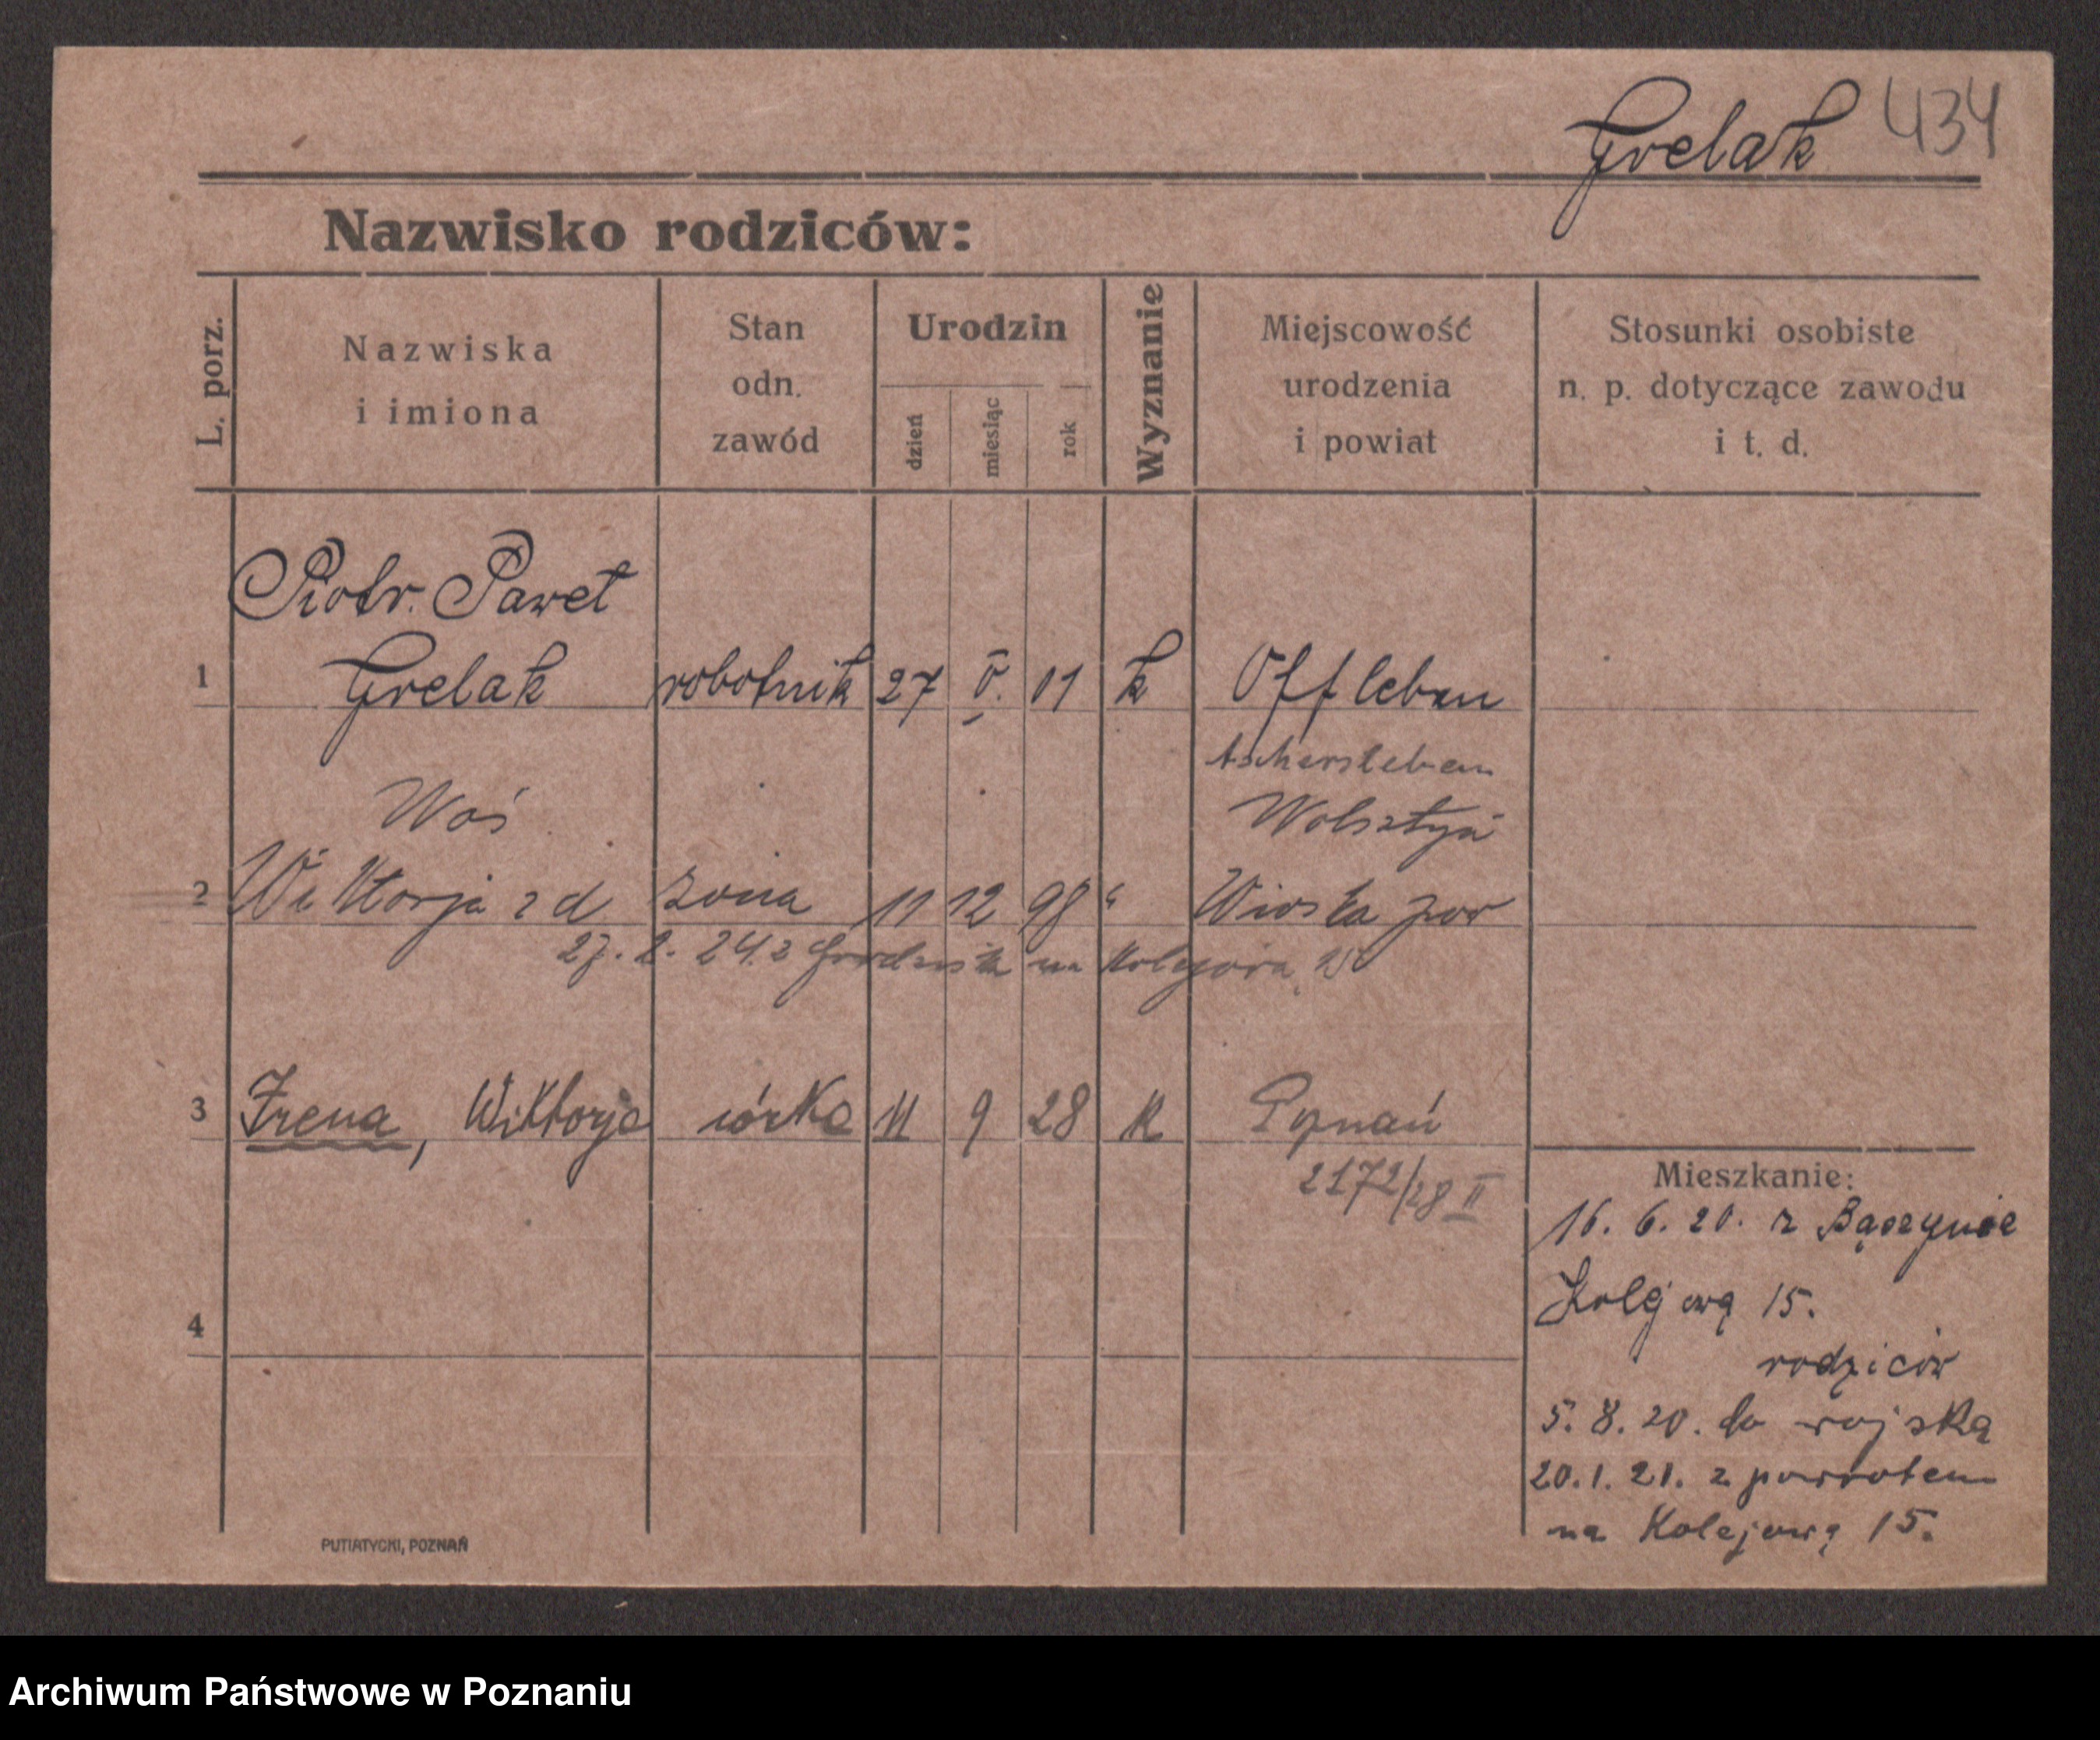 Grelak 434
Nazwisko rodziców:
L. porz.
Nazwiska
i imiona
Stan
odn.
zawód
Urodzin
dzień
miesiąc
rok
Wyznanie
Miejscowość
urodzenia
i powiat
Stosunki osobiste
n. p. dotyczące zawodu
i t. d.
Piotr. Paweł
1 Grelak robotnik 27 V. 01 k Offleben
Aschersleben
Woś Wolsztyn
2 Wiktorja z d żona 11 12 98 " Wioska pow
27. 2. 24. z Grodziska na Kolejową 15
3 Irena, Wiktorja córka 11 9 28 K Poznań
2172/28 II
4
Mieszkanie:
16. 6. 20. z
Kolejową 15.
rodziców
5. 8. 20. do wojska
20. 1. 21. z powrotem
na Kolejową 15.
PUTIATYCKI, POZNAŃ
Archiwum Państwowe w Poznaniu